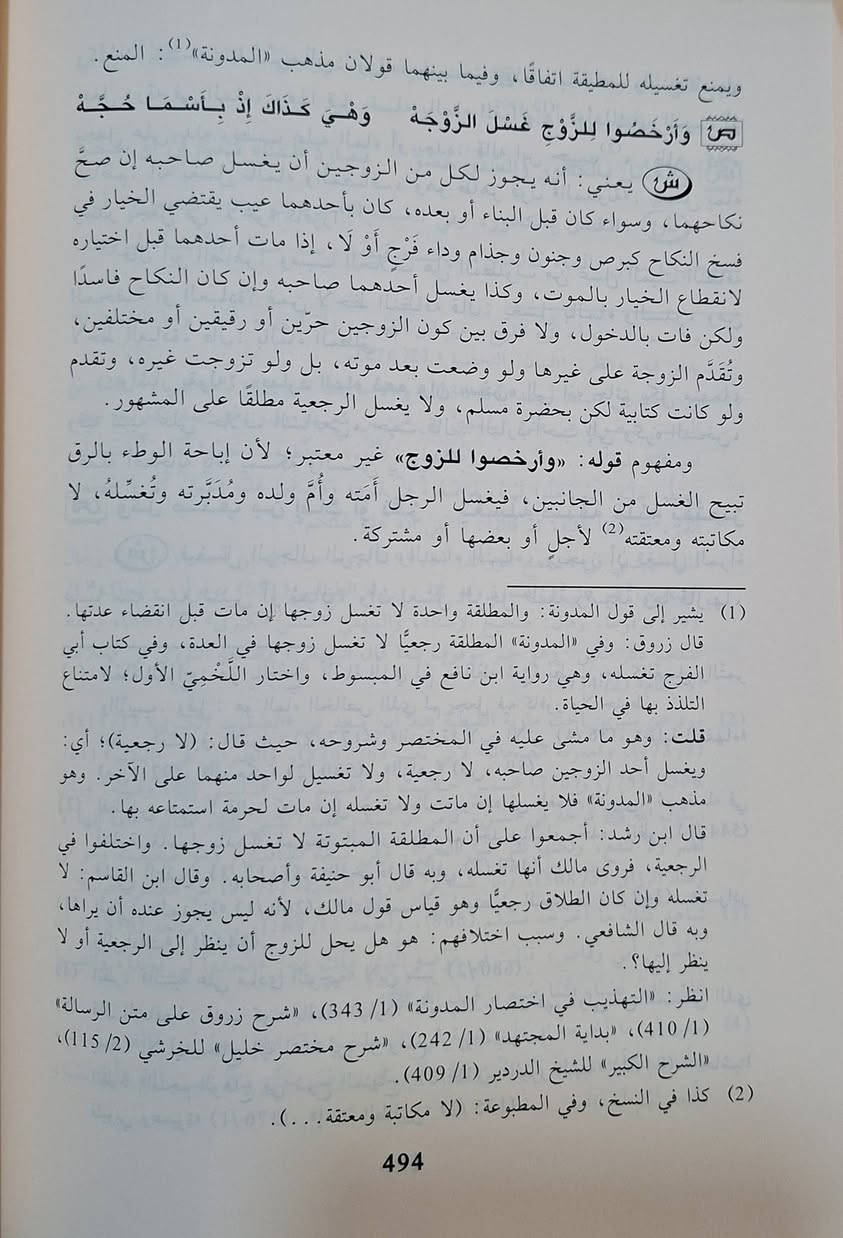 ويمنع تغسيله للمطيقة اتفاقًا، وفيما بينهما قولان مذهب «المدونة»(1): المنع.
ص وَأَرْخَصُوا لِلزَّوْجِ غَسْلَ الزَّوْجَهْ وَهْيَ كَذَاكَ إِذْ بِأَسْمَا حُجَّهْ
ش يعني: أنه يجوز لكل من الزوجين أن يغسل صاحبه إن صحَّ
نكاحهما، وسواء كان قبل البناء أو بعده، كان بأحدهما عيب يقتضي الخيار في
فسخ النكاح كبرص وجنون وجذام وداء فَرْجٍ أَوْ لَا، إذا مات أحدهما قبل اختياره
لانقطاع الخيار بالموت، وكذا يغسل أحدهما صاحبه وإن كان النكاح فاسدًا
ولكن فات بالدخول، ولا فرق بين كون الزوجين حرّين أو رقيقين أو مختلفين،
وتُقَدَّم الزوجة على غيرها ولو وضعت بعد موته، بل ولو تزوجت غيره، وتقدم
ولو كانت كتابية لكن بحضرة مسلم، ولا يغسل الرجعية مطلقًا على المشهور.
ومفهوم قوله: «وأرخصوا للزوج» غير معتبر؛ لأن إباحة الوطء بالرق
تبيح الغسل من الجانبين، فيغسل الرجل أَمَته وأُمَّ ولده ومُدَبَّرته وتُغَسِّلهُ، لا
مكاتبته ومعتقته(2) لأجلٍ أو بعضها أو مشتركة.
(1) يشير إلى قول المدونة: والمطلقة واحدة لا تغسل زوجها إن مات قبل انقضاء عدتها.
قال زروق: وفي «المدونة» المطلقة رجعيًّا لا تغسل زوجها في العدة، وفي كتاب أبي
الفرج تغسله، وهي رواية ابن نافع في المبسوط، واختار اللَّخْمِيّ الأول؛ لامتناع
التلذذ بها في الحياة.
قلت: وهو ما مشى عليه في المختصر وشروحه، حيث قال: (لا رجعية)؛ أي:
ويغسل أحد الزوجين صاحبه، لا رجعية، ولا تغسيل لواحد منهما على الآخر. وهو
مذهب «المدونة» فلا يغسلها إن ماتت ولا تغسله إن مات لحرمة استمتاعه بها.
قال ابن رشد: أجمعوا على أن المطلقة المبتوتة لا تغسل زوجها. واختلفوا في
الرجعية، فروى مالك أنها تغسله، وبه قال أبو حنيفة وأصحابه. وقال ابن القاسم: لا
تغسله وإن كان الطلاق رجعيًّا وهو قياس قول مالك، لأنه ليس يجوز عنده أن يراها،
وبه قال الشافعي. وسبب اختلافهم: هو هل يحل للزوج أن ينظر إلى الرجعية أو لا
ينظر إليها؟.
انظر: «التهذيب في اختصار المدونة» (1/ 343)، «شرح زروق على متن الرسالة»
(1/ 410)، «بداية المجتهد» (1/ 242)، «شرح مختصر خليل» للخرشي (2/ 115)،
«الشرح الكبير» للشيخ الدردير (1/ 409).
(2) كذا في النسخ، وفي المطبوعة: (لا مكاتبة ومعتقة...).
494